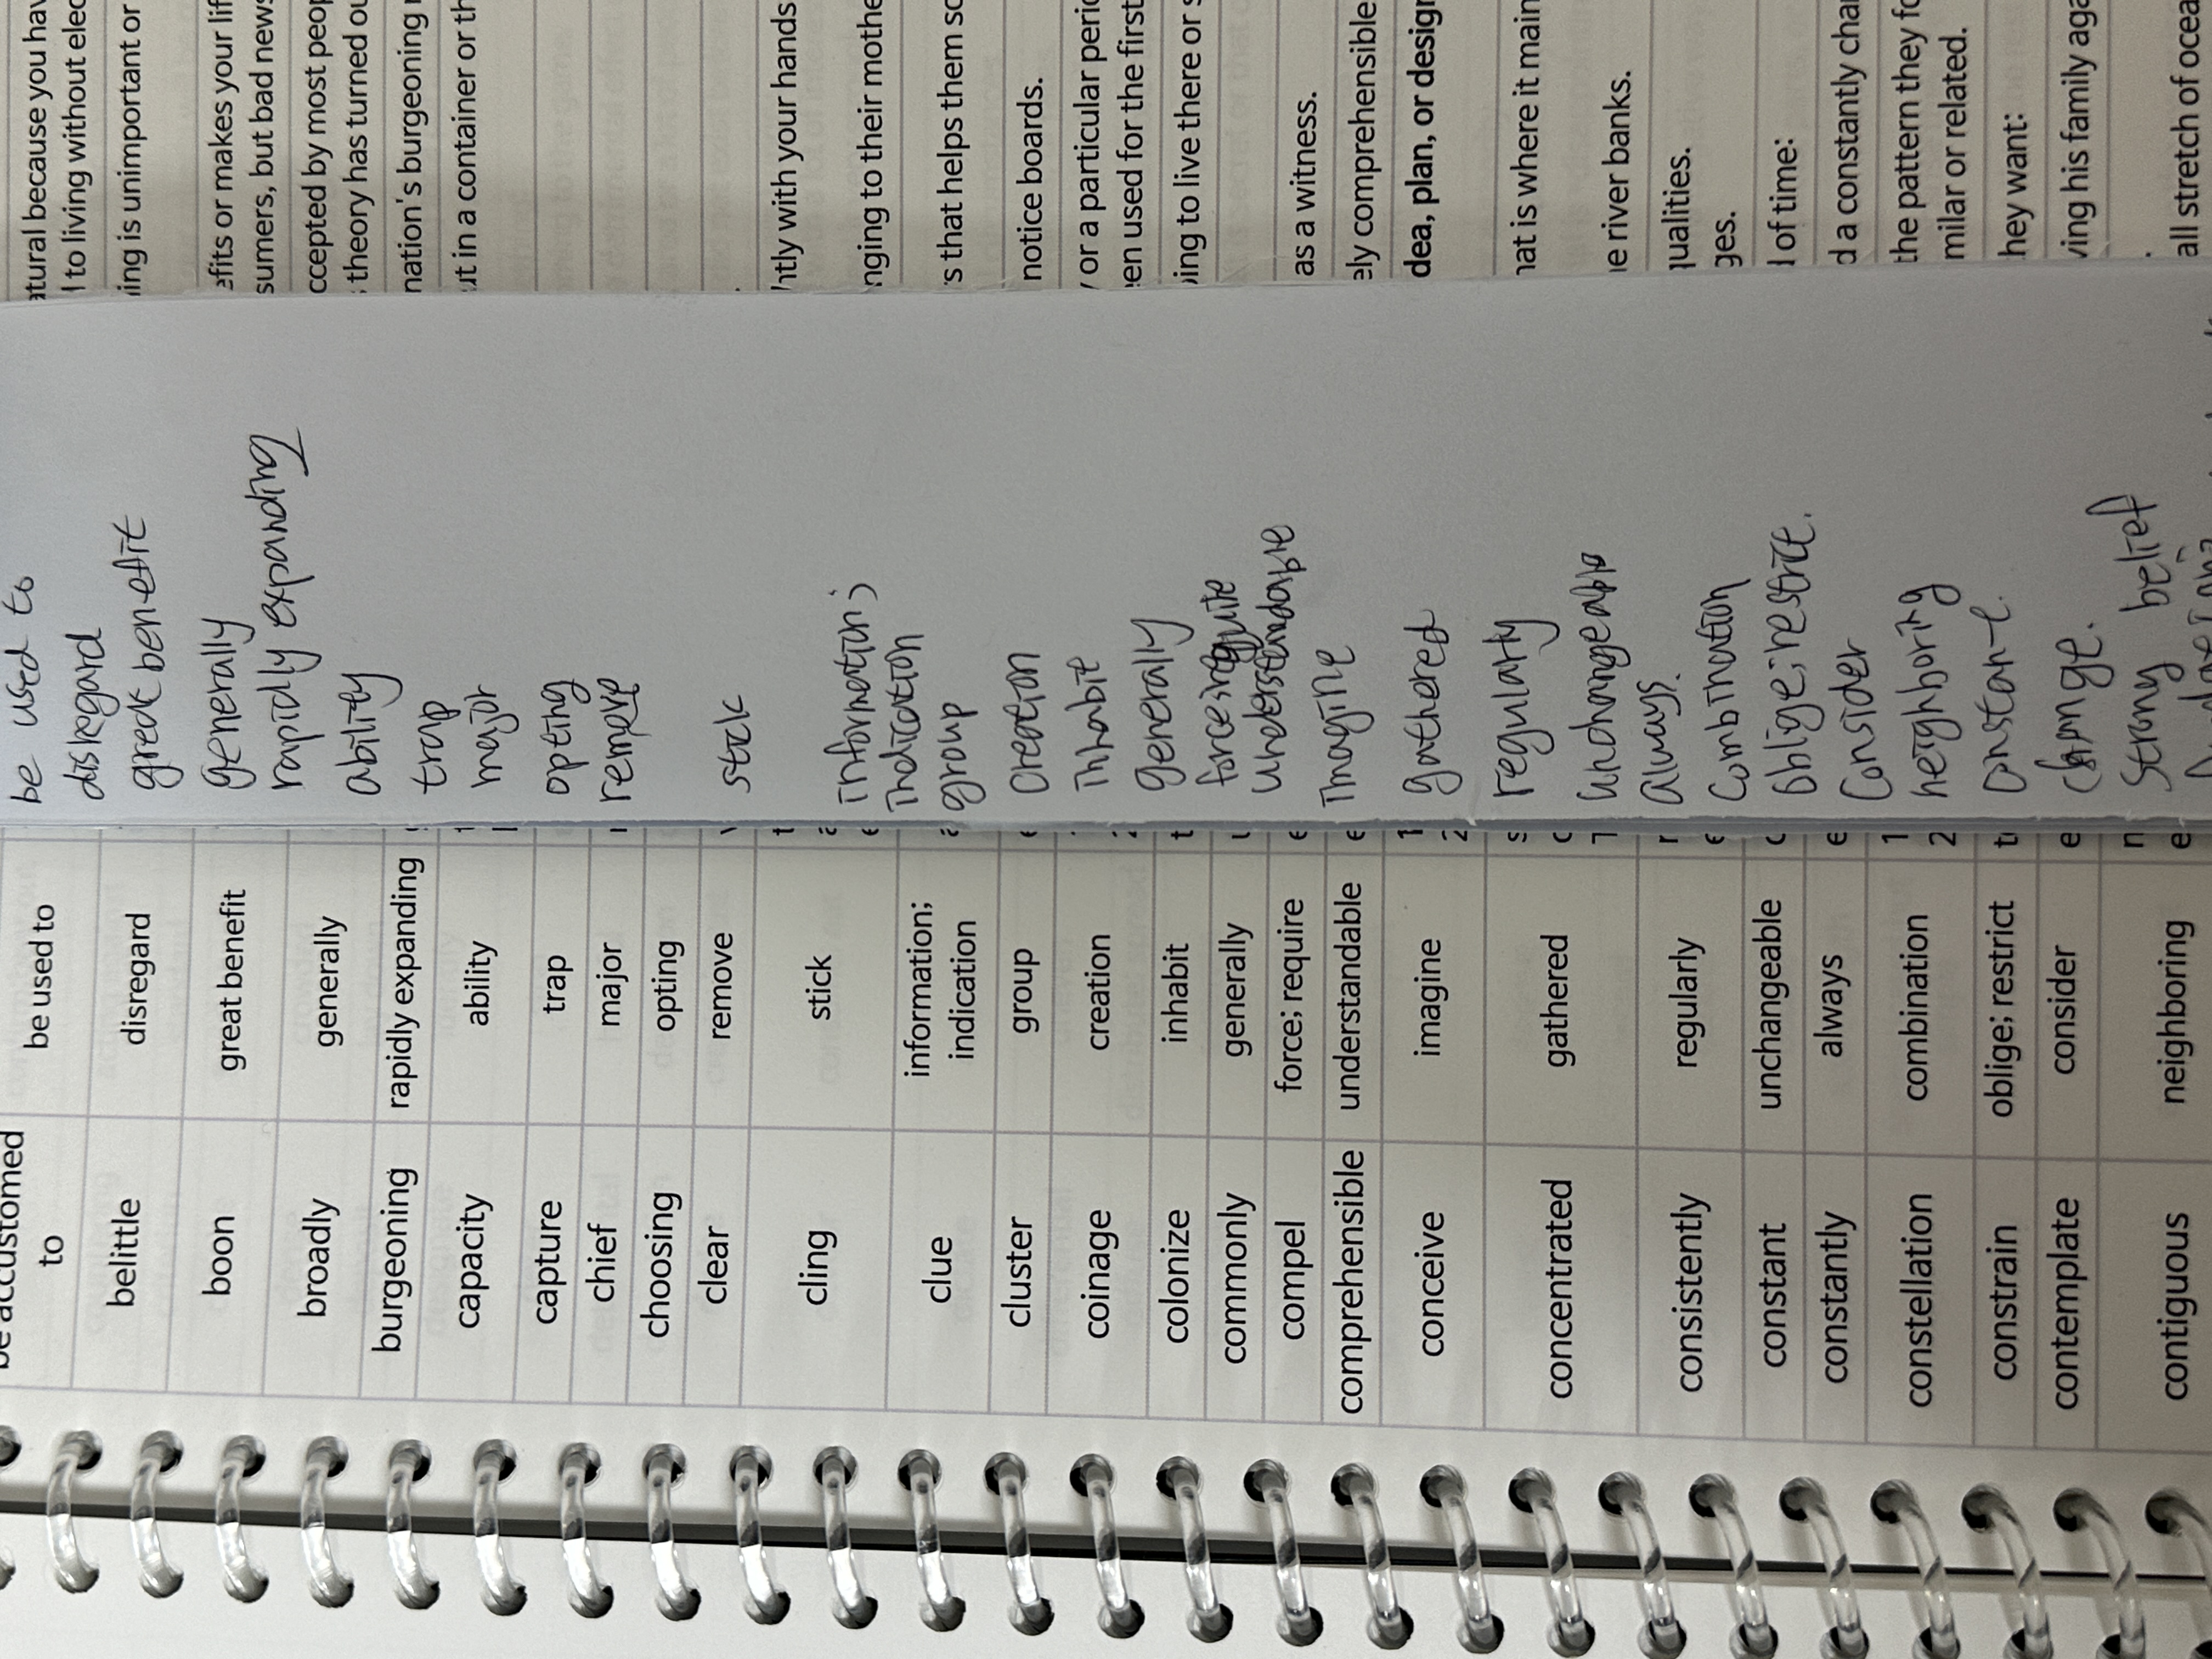 be accustomed
to
be used to
belittle
disregard
boon
great benefit
broadly
generally
burgeoning
rapidly expanding
capacity
ability
capture
trap
chief
major
choosing
opting
clear
remove
cling
stick
clue
information;
indication
cluster
group
coinage
creation
colonize
inhabit
commonly
generally
compel
force; require
comprehensible
understandable
conceive
imagine
concentrated
gathered
consistently
regularly
constant
unchangeable
constantly
always
constellation
combination
constrain
oblige; restrict
contemplate
consider
contiguous
neighboring
be used to
disregard
great benefit
generally
rapidly expanding
ability
trap
major
opting
remove
stick
information;
indication
group
creation
inhabit
generally
force;
understandable
Imagine
gathered
regularly
unchangeable
always.
combination
oblige; restrict.
consider
neighboring
constant
change.
strong belief
because you hav
to living without elec
is unimportant or
or makes your lif
sumers, but bad news
by most peop
theory has turned ou
nation's burgeoning
in a container or th
with your hands
to their mothe
that helps them so
notice boards.
or a particular perio
used for the first
to live there or s
as a witness.
comprehensible
plan, or design
is where it main
river banks.
qualities.
of time:
a constantly chan
the pattern they fo
or related.
they want:
his family aga
all stretch of ocea